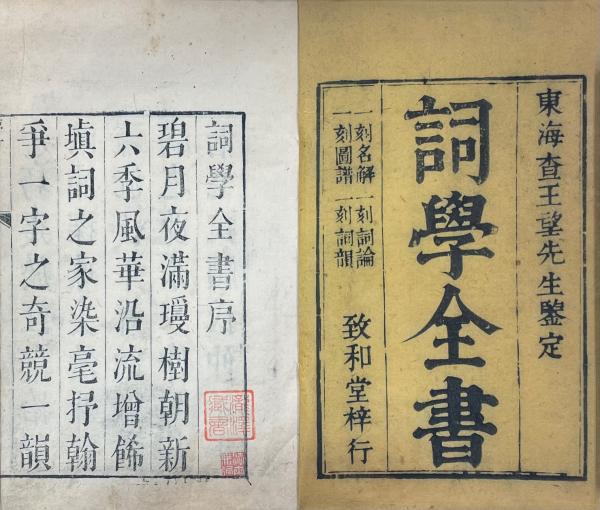 東海查王望先生鑒定
詞學全書
一刻名解一刻詞論
一刻圖譜一刻詞韻
致和堂梓行
詞學全書序
碧月夜滿瓊樹朝新
六季風華沿流增餙
塡詞之家染毫抒翰
爭一字之奇競一韻